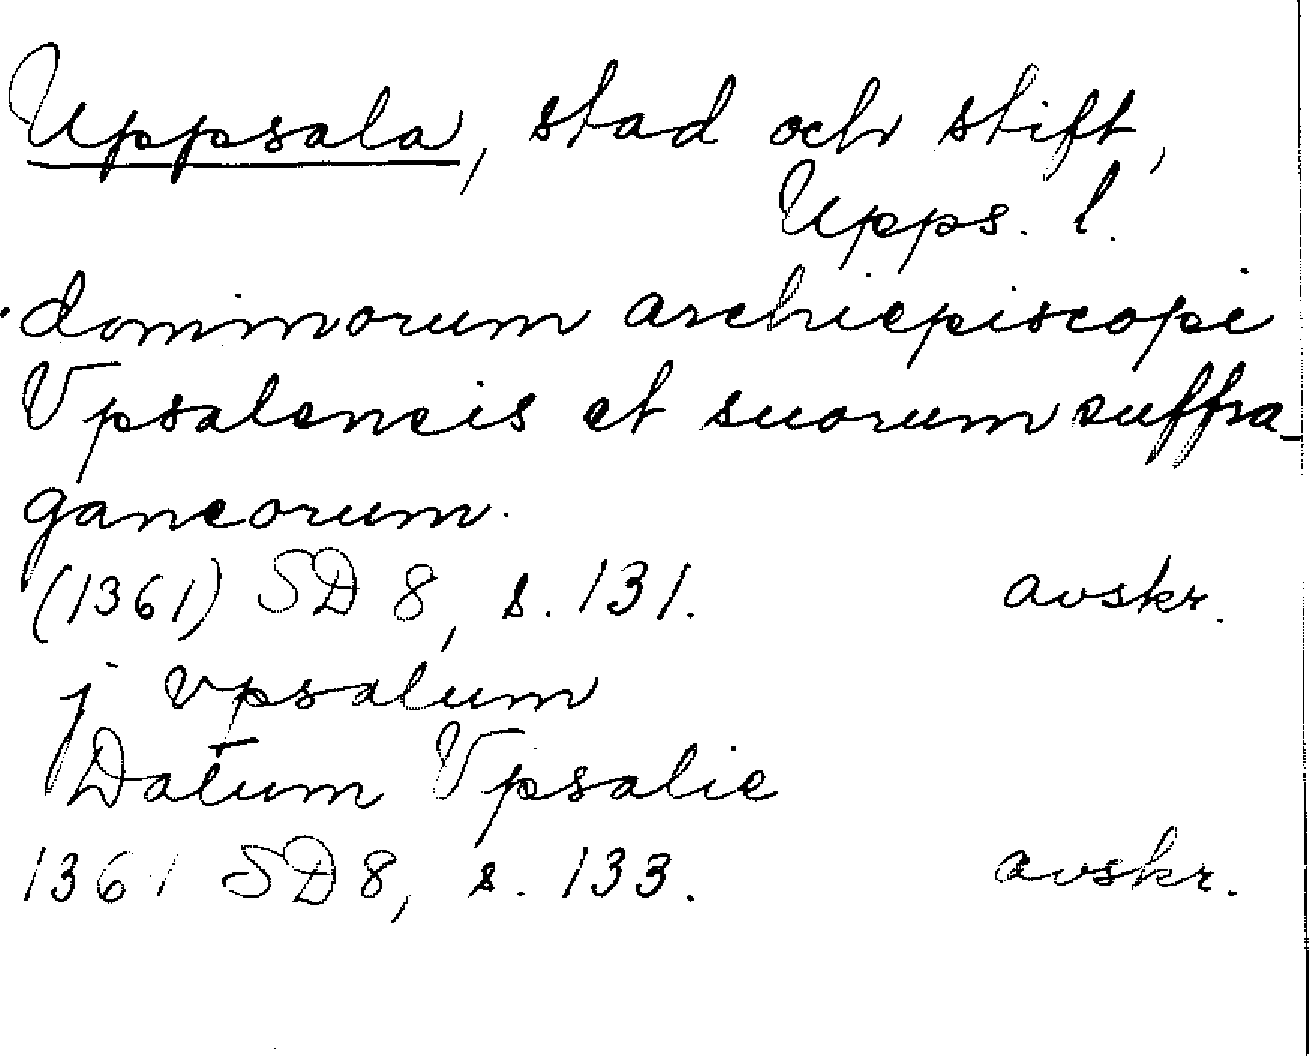 Uppsala, stad och stift,
Upps. l.
dominorum archiepiscopi
Vpsalencis et suorum suffra-
ganeorum.
(1361) SD 8, s. 131. avskr.
j vpsalum
Datum Vpsalie
1361 SD 8, s. 133. avskr.